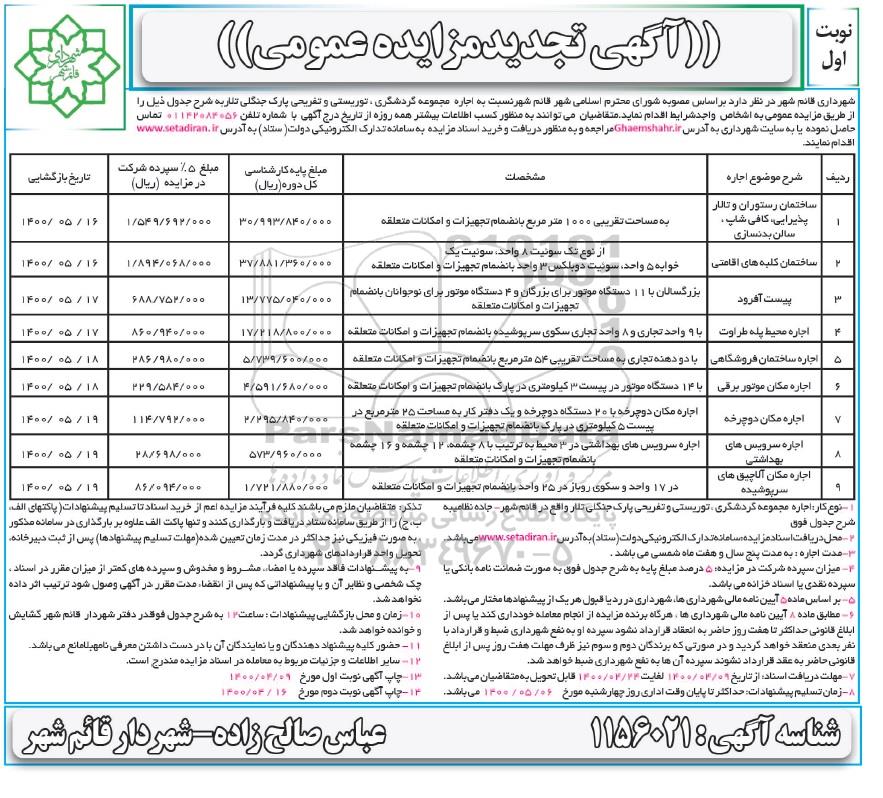 نوبت
اول
((آگهی تجدیدمزایده عمومی))
شهرداری
قائم شهر
شهرداری قائم شهر در نظر دارد براساس مصوبه شورای محترم اسلامی شهر قائم شهرنسبت به اجاره مجموعه گردشگری ، توریستی و تفریحی پارک جنگلی تلاربه شرح جدول ذیل را
از طریق مزایده عمومی به اشخاص واجدشرایط اقدام نماید.متقاضیان می توانند به منظور کسب اطلاعات بیشتر همه روزه از تاریخ درج آگهی با شماره تلفن ۰۱۱۴۲۰۸۴۰۵۶ تماس
حاصل نموده یا به سایت شهرداری به آدرس Ghaemshahr.irمراجعه و به منظور دریافت و خرید اسناد مزایده به سامانه تدارک الکترونیکی دولت( ستاد) به آدرس www.setadiran.ir
اقدام نمایند.
ردیف شرح موضوع اجاره مشخصات مبلغ پایه کارشناسی کل دوره(ریال) مبلغ ۵٪ سپرده شرکت در مزایده (ریال) تاریخ بازگشایی
۱ ساختمان رستوران و تالار پذیرایی، کافی شاپ ، سالن بدنسازی به مساحت تقریبی ۱۰۰۰ متر مربع بانضمام تجهیزات و امکانات متعلقه ۳۰/۹۹۳/۸۴۰/۰۰۰ ۱/۵۴۹/۶۹۲/۰۰۰ ۱۶ / ۰۵ / ۱۴۰۰
۲ ساختمان کلبه های اقامتی از نوع تک سوئیت ۸ واحد، سوئیت یک خوابه ۵ واحد، سوئیت دوبلکس ۳ واحد بانضمام تجهیزات و امکانات متعلقه ۳۷/۸۸۱/۳۶۰/۰۰۰ ۱/۸۹۴/۰۶۸/۰۰۰ ۱۶ / ۰۵ / ۱۴۰۰
۳ پیست آفرود بزرگسالان با ۱۱ دستگاه موتور برای بزرگان و ۴ دستگاه موتور برای نوجوانان بانضمام تجهیزات و امکانات متعلقه ۱۳/۷۷۵/۰۴۰/۰۰۰ ۶۸۸/۷۵۲/۰۰۰ ۱۷ / ۰۵ / ۱۴۰۰
۴ اجاره محیط پله طراوت با ۹ واحد تجاری و ۸ واحد تجاری سکوی سرپوشیده بانضمام تجهیزات و امکانات متعلقه ۱۷/۲۱۸/۸۰۰/۰۰۰ ۸۶۰/۹۴۰/۰۰۰ ۱۷ / ۰۵ / ۱۴۰۰
۵ اجاره ساختمان فروشگاهی با دو دهنه تجاری به مساحت تقریبی ۵۴ مترمربع بانضمام تجهیزات و امکانات متعلقه ۵/۷۳۹/۶۰۰/۰۰۰ ۲۸۶/۹۸۰/۰۰۰ ۱۸ / ۰۵ / ۱۴۰۰
۶ اجاره مکان موتور برقی با ۱۴ دستگاه موتور در پیست ۳ کیلومتری در پارک بانضمام تجهیزات و امکانات متعلقه ۴/۵۹۱/۶۸۰/۰۰۰ ۲۲۹/۵۸۴/۰۰۰ ۱۸ / ۰۵ / ۱۴۰۰
۷ اجاره مکان دوچرخه اجاره مکان دوچرخه با ۲۰ دستگاه دوچرخه و یک دفتر کار به مساحت ۲۵ مترمربع در پیست ۵ کیلومتری در پارک بانضمام تجهیزات و امکانات متعلقه ۲/۲۹۵/۸۴۰/۰۰۰ ۱۱۴/۷۹۲/۰۰۰ ۱۹ / ۰۵ / ۱۴۰۰
۸ اجاره سرویس های بهداشتی اجاره سرویس های بهداشتی در ۳ محیط به ترتیب با ۸ چشمه، ۱۲ چشمه و ۱۶ چشمه بانضمام تجهیزات و امکانات متعلقه ۵۷۳/۹۶۰/۰۰۰ ۲۸/۶۹۸/۰۰۰ ۱۹ / ۰۵ / ۱۴۰۰
۹ اجاره مکان آلاچیق های سرپوشیده در ۱۷ واحد و سکوی روباز در ۲۵ واحد بانضمام تجهیزات و امکانات متعلقه ۱/۷۲۱/۸۸۰/۰۰۰ ۸۶/۰۹۴/۰۰۰ ۱۹ / ۰۵ / ۱۴۰۰
۱-نوع کار: اجاره مجموعه گردشگری ، توریستی و تفریحی پارک جنگلی تلار واقع در قائم شهر- جاده نظامی به
شرح جدول فوق
۲-محل دریافت اسناد مزایده:سامانه تدارک الکترونیکی دولت(ستاد)به آدرس www.setadiran.irمی باشد.
۳-مدت اجاره : به مدت پنج سال و هفت ماه شمسی می باشد .
۴- میزان سپرده شرکت در مزایده: ۵ درصد مبلغ پایه به شرح جدول فوق به صورت ضمانت نامه بانکی یا
سپرده نقدی یا اسناد خزانه می باشد.
۵- بر اساس ماده ۵ آیین نامه مالی شهرداری ها، شهرداری در رد یا قبول هر یک از پیشنهادها مختار می باشد.
۶- مطابق ماده ۸ آیین نامه مالی شهرداری ها ، هرگاه برنده مزایده از انجام معامله خودداری کند یا پس از
ابلاغ قانونی حداکثر تا هفت روز حاضر به انعقاد قرارداد نشود سپرده او به نفع شهرداری ضبط و قرارداد با
نفر بعدی منعقد خواهد گردید و در صورتی که برندگان دوم و سوم نیز ظرف مهلت هفت روز پس از ابلاغ
قانونی حاضر به عقد قرارداد نشوند سپرده آن ها به نفع شهرداری ضبط خواهد شد.
۷-مهلت دریافت اسناد: از تاریخ ۱۴۰۰/۰۴/۰۹ لغایت ۱۴۰۰/۰۴/۲۴ قابل تحویل به متقاضیان می باشد.
۸-زمان تسلیم پیشنهادات: حداکثر تا پایان وقت اداری روز چهارشنبه مورخ ۰۶ /۰۵ / ۱۴۰۰ می باشد.
تذکر: متقاضیان ملزم می باشند کلیه فرآیند مزایده اعم از خرید اسناد تا تسلیم پیشنهادات( پاکتهای الف،
ب، ج) را از طریق سامانه ستاد دریافت و بارگذاری کنند و تنها پاکت الف علاوه بر بارگذاری در سامانه مذکور
به صورت فیزیکی نیز حداکثر در مدت زمان تعیین شده(مهلت تسلیم پیشنهادها) پس از ثبت دبیرخانه،
تحویل واحد قراردادهای شهرداری گردد.
۹-به پیشنهادات فاقد سپرده یا امضاء، مشروط و مخدوش و سپرده های کمتر از میزان مقرر در اسناد ،
چک شخصی و نظایر آن و یا پیشنهاداتی که پس از انقضاء مدت مقرر ،در آگهی و وصول شود ترتیب اثر داده
نخواهد شد.
۱۰-زمان و محل بازگشایی پیشنهادات : ساعت ۱۲ به شرح جدول فوقدر دفتر شهردار قائم شهر گشایش
و خوانده خواهد شد.
۱۱- حضور کلیه پیشنهاد دهندگان و یا نمایندگان آن با در دست داشتن معرفی نامهبلامانع می باشد.
۱۲- سایر اطلاعات و جزئیات مربوط به معامله در اسناد مزایده مندرج است.
۱۳-چاپ آگهی نوبت اول مورخ ۱۴۰۰/۰۴/۰۹
۱۴-چاپ آگهی نوبت دوم مورخ ۱۶ / ۱۴۰۰/۰۴
شناسه آگهی : ۱۱۵۶۰۲۱
عباس صالح زاده-شهردار قائم شهر